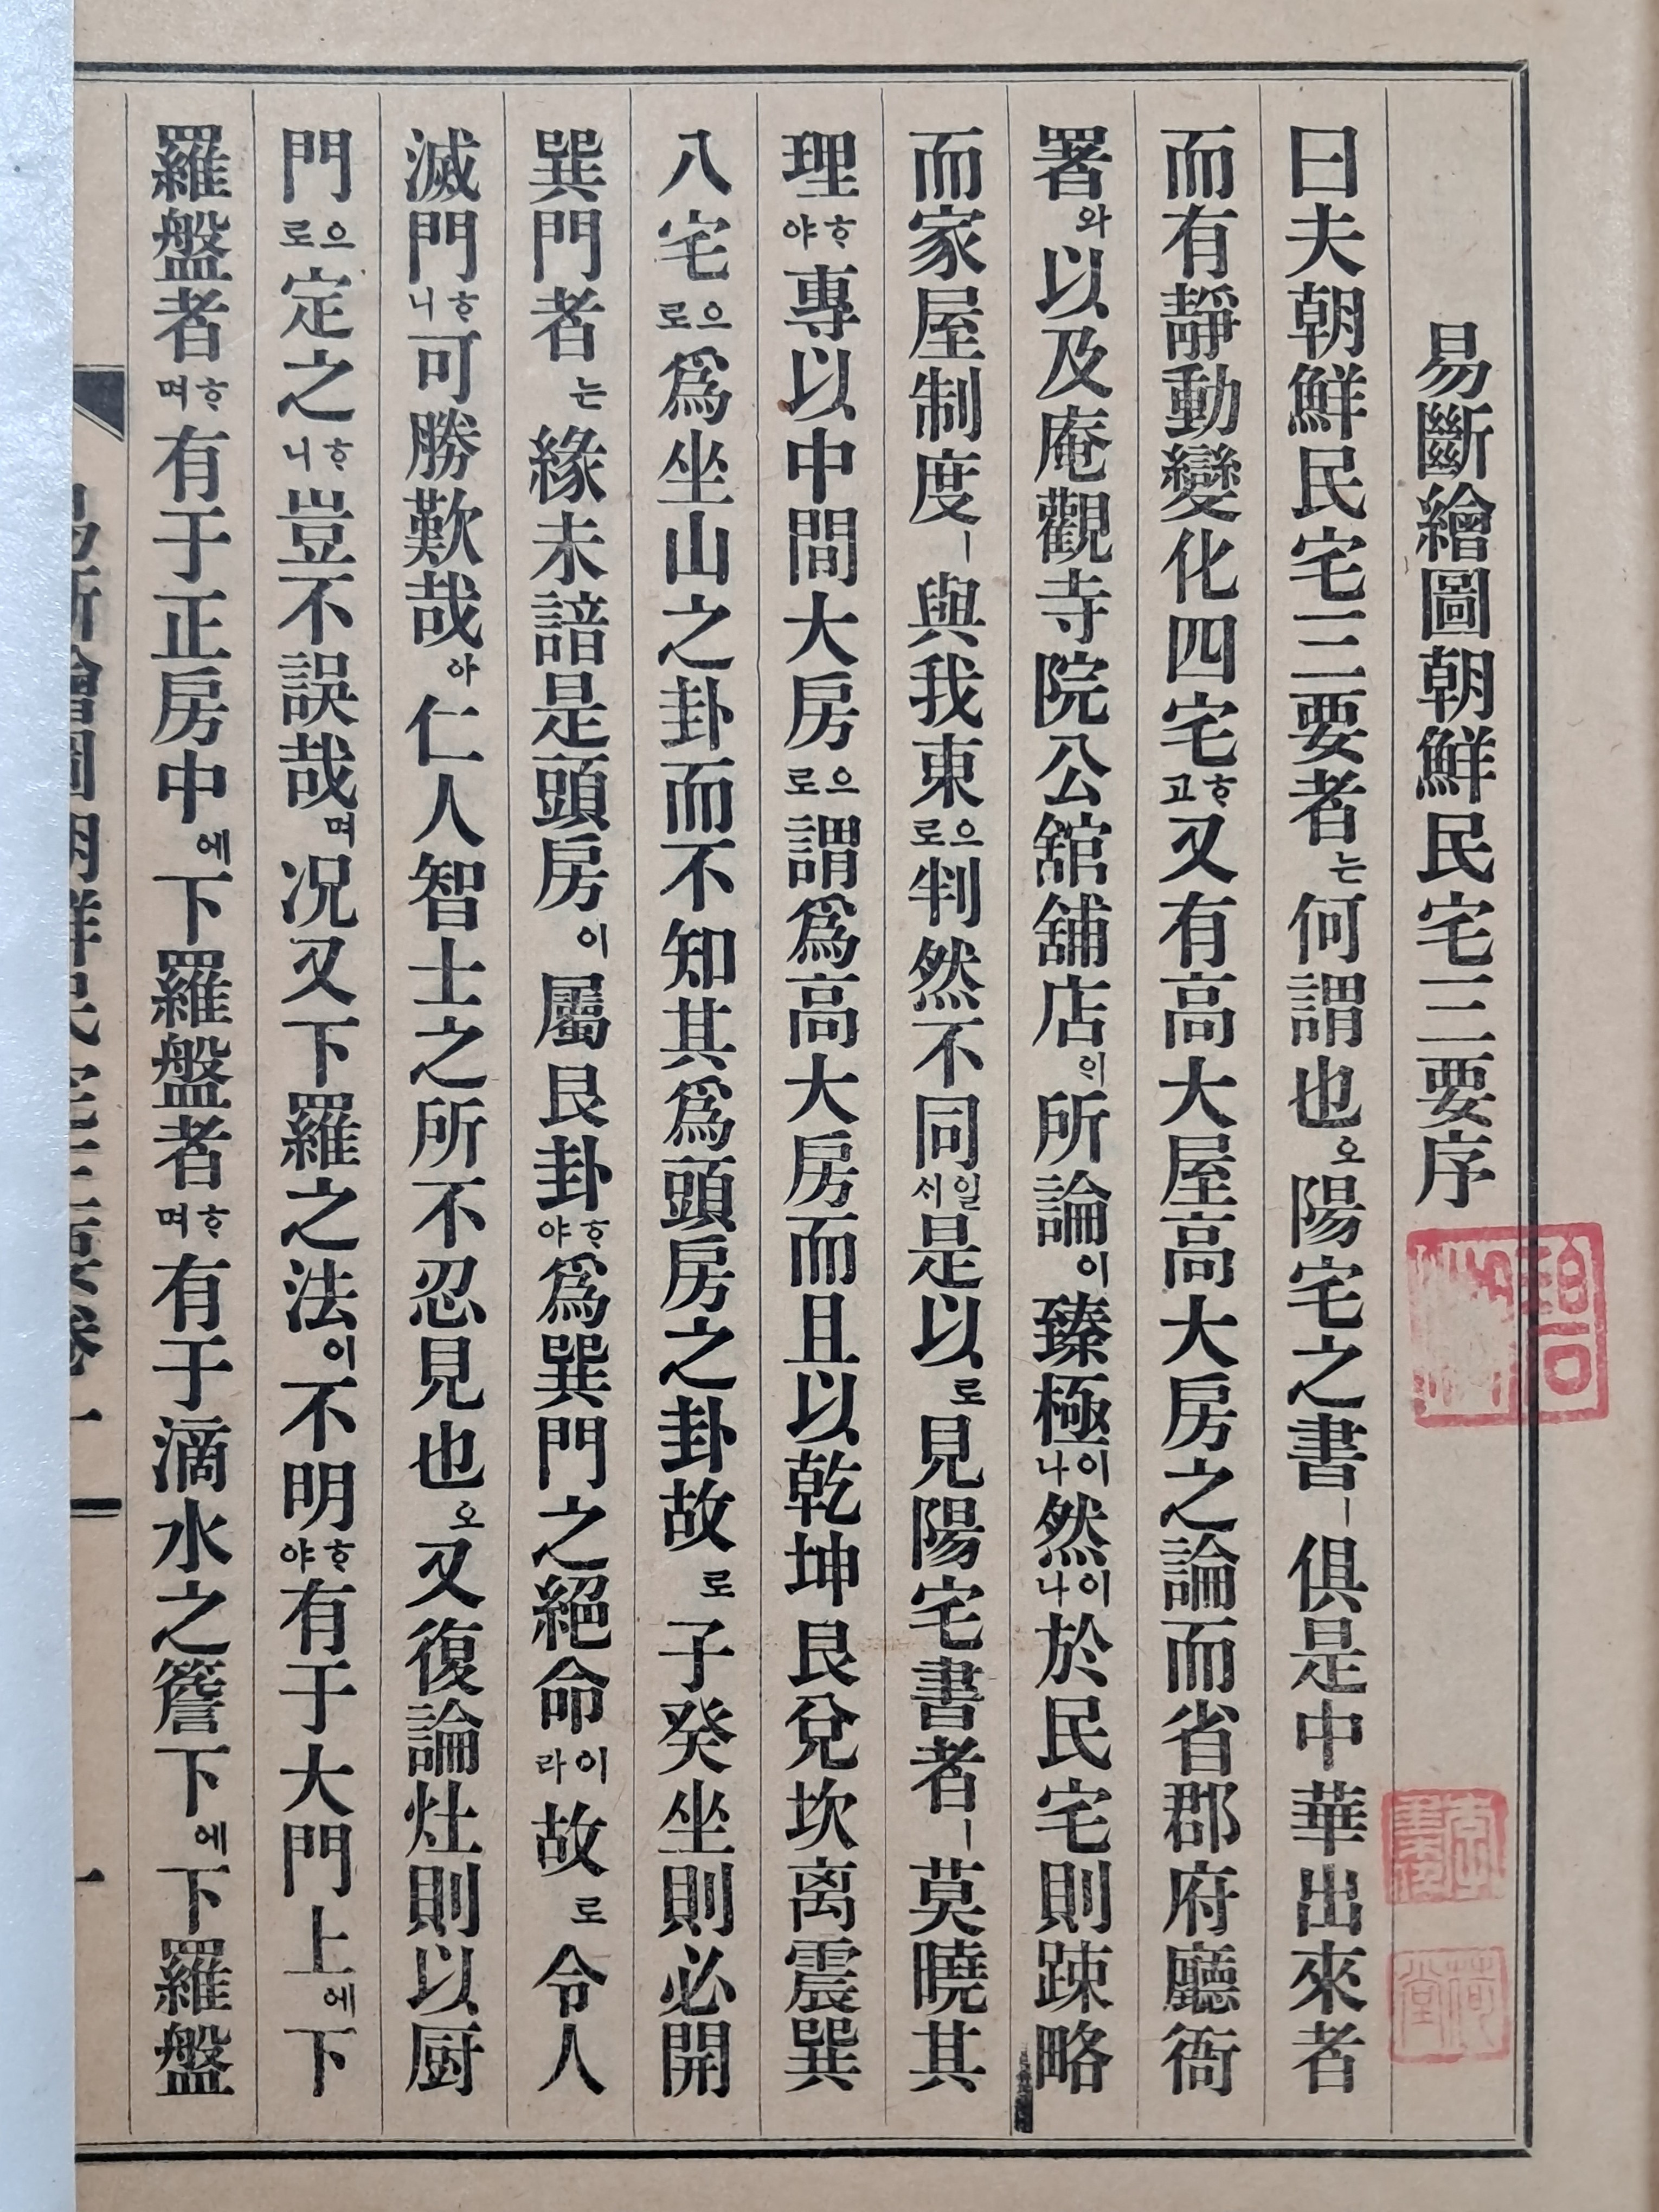 易斷繪圖朝鮮民宅三要序
曰夫朝鮮民宅三要者는何謂也오陽宅之書ㅣ俱是中華出來者
而有靜動變化四宅ᄒᆞ고又有高大屋高大房之論而省郡府廳衙
署와以及庵觀寺院公舘舖店의所論이臻極이나然이나於民宅則踈略
而家屋制度ㅣ與我東으로判然不同일서是以로見陽宅書者ㅣ莫曉其
理ᄒᆞ야專以中間大房으로謂爲高大房而且以乾坤艮兌坎离震巽
八宅으로爲坐山之卦而不知其爲頭房之卦故로子癸坐則必開
巽門者는緣未諳是頭房이屬艮卦ᄒᆞ야爲巽門之絕命이라故로令人
滅門ᄒᆞ니可勝歎哉아仁人智士之所不忍見也오又復論灶則以厨
門으로定之ᄒᆞ니豈不誤哉며况又下羅之法이不明ᄒᆞ야有于大門上에下
羅盤者ᄒᆞ며有于正房中에下羅盤者ᄒᆞ며有于滴水之簷下에下羅盤